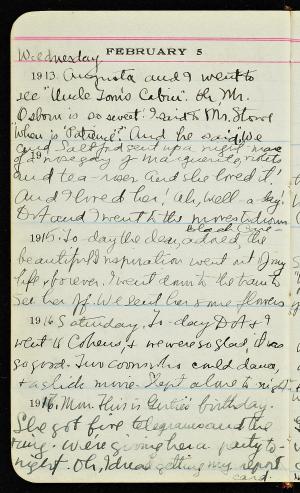 FEBRUARY 5
Wednesday
1913. Augusta and I went to
see "Uncle Tom's Cabin". Oh, Mr.
Osborn is so sweet! I said to Mr. Stowe
"when is 'Patience'?" And he said, "We
and sent up a night
19 nosegay of Marguerites, violets
and tea-roses And she loved it!
And I loved her! Ah, well - a day!
Dot and I went to the movies down
Black Cane -
1915. To-day the dear, adored, the
beautiful inspiration went out of my
life forever. I went down to the train to
see her off. We sent her some flowers
1916 Saturday. To-day Dot & I
went to Cohens, & we were so glad, it was
so good. Two coons who could dance,
& a slide movie. Slept alone to night
1917. Mon. This is Gertie's birthday.
She got five telegrams and the
ring. We're giving her a party to-
night. Oh, I dread getting my report
card.